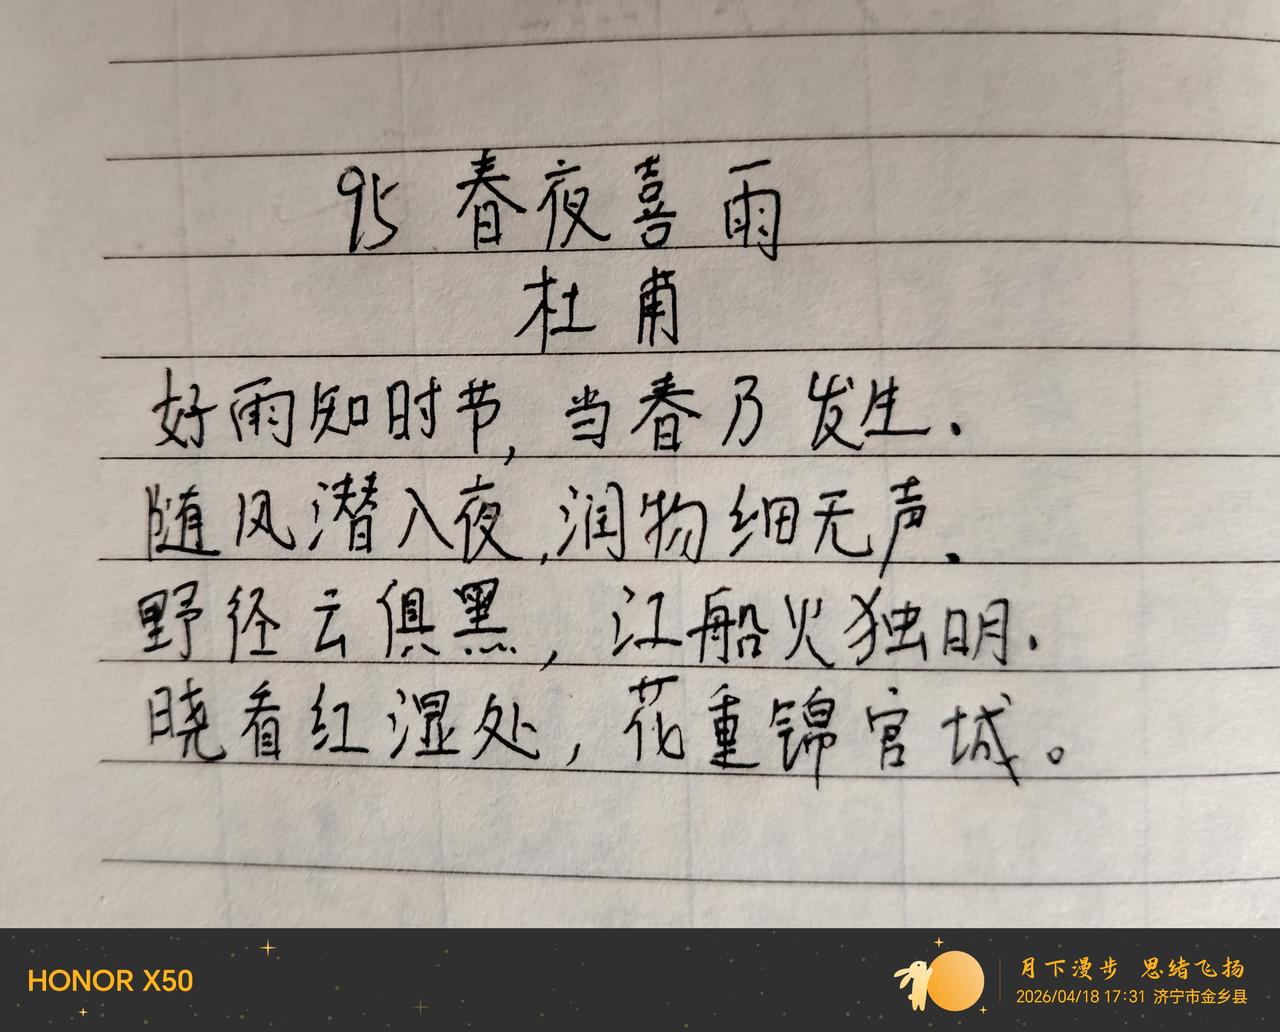 95 春夜喜雨
杜甫
好雨知时节,当春乃发生.
随风潜入夜,润物细无声.
野径云俱黑,江船火独明.
晓看红湿处,花重锦官城。
HONOR X50
月下漫步 思绪飞扬
2026/04/18 17:31 济宁市金乡县